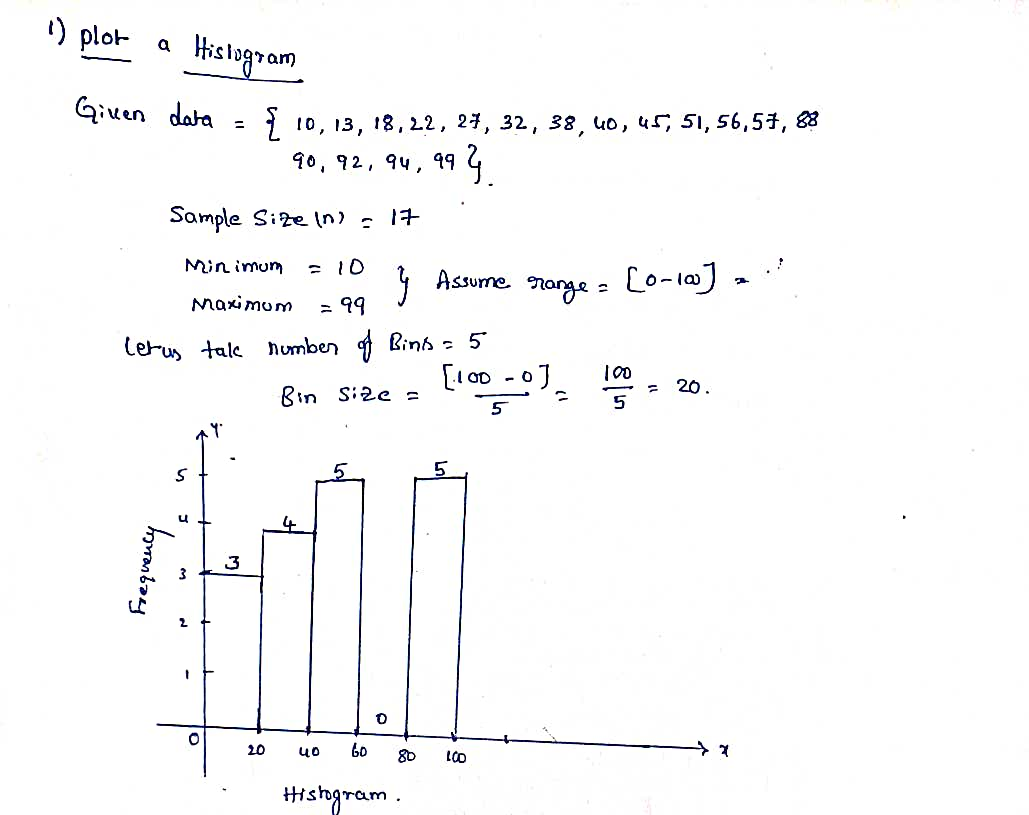 1) plot a Histogram
Given data = { 10, 13, 18, 22, 27, 32, 38, 40, 45, 51, 56, 57, 88
90, 92, 94, 99 }.
Sample Size (n) = 17
Minimum = 10
Maximum = 99
} Assume range = [0-100] =
Let us take number of Bins = 5
Bin Size = [100 - 0] / 5 = 100 / 5 = 20.
Y
5
4
3
2
1
0
Frequency
3
4
5
0
5
20 40 60 80 100
x
Histogram.